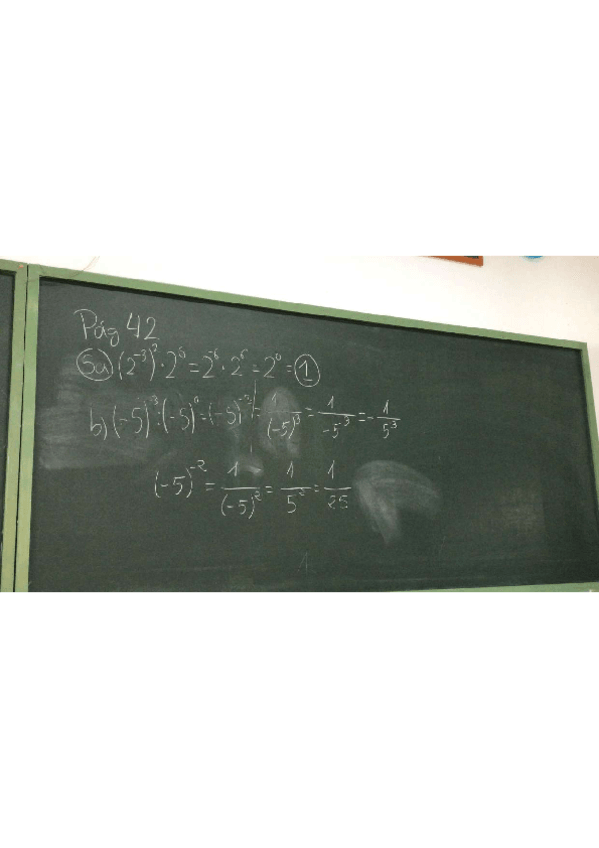 Pág 42
5a) (2⁻³)² · 2⁶ = 2⁻⁶ · 2⁶ = 2⁰ = 1
b) (-5)⁻³ · (-5)⁰ = (-5)⁻³ = 1/(-5)³ = 1/-5³ = -1/5³
(-5)⁻² = 1/(-5)² = 1/5² = 1/25